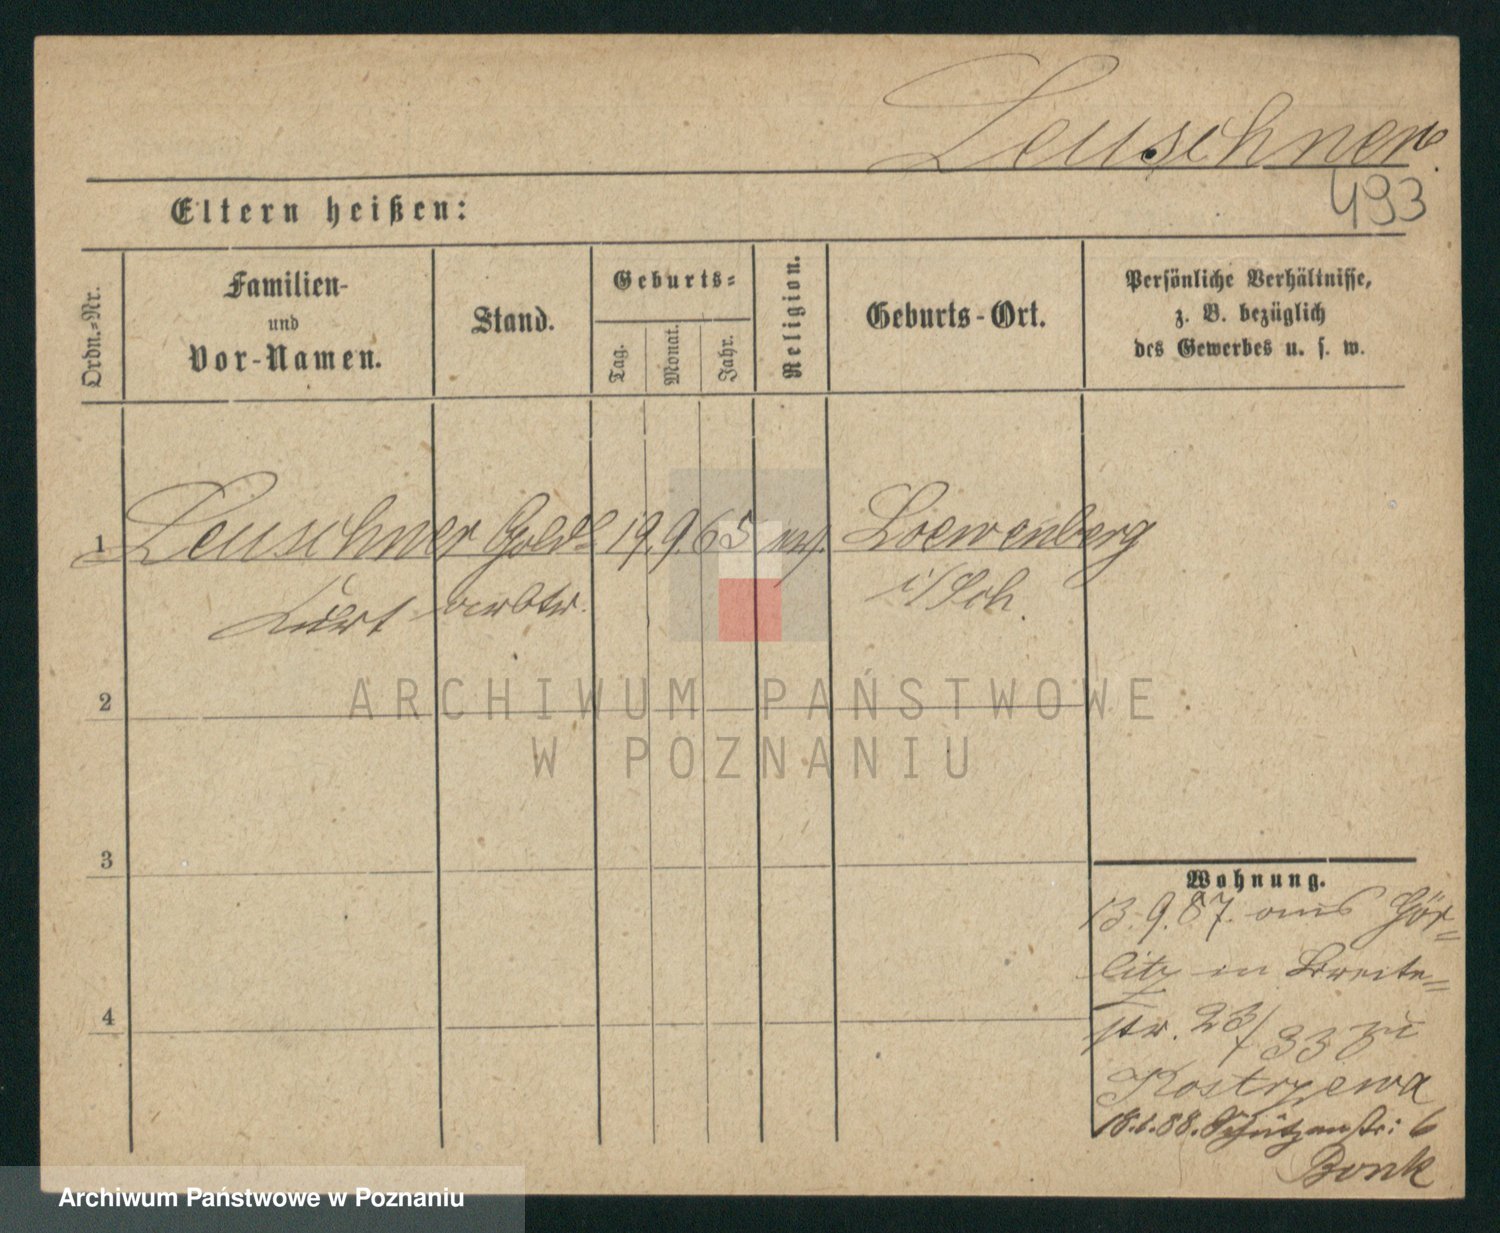 Leuschner
493
Eltern heißen:
Ordn.-Nr.
Familien-
und
Vor-Namen.
Stand.
Geburts-
Tag.
Monat.
Jahr.
Religion.
Geburts-Ort.
Persönliche Verhältnisse,
z. B. bezüglich
des Gewerbes u. s. w.
1 Leuschner 19. 9. 65 Loewenberg
Kurt i/Sch.
2
ARCHIWUM PAŃSTWOWE
W POZNANIU
3
Wohnung.
13. 9. 87. aus Gör=
litz in Breite=
str. 23/33 zu
Kostrzewa
18.1.88. Schützenstr: 6
Bonk
4
Archiwum Państwowe w Poznaniu